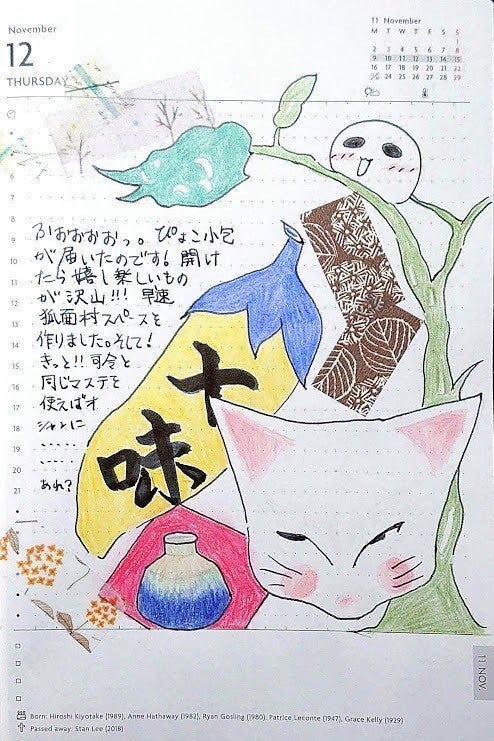 November
12
THURSDAY
11 November
M T W T F S S
1
2 3 4 5 6 7 8
9 10 11 12 13 14 15
16 17 18 19 20 21 22
24 25 26 27 28 29
7
8
9
10
11
12
13
14
15
16
17
18
19
20
21
ふおおおおっ。ぴょこ小包
が届いたのです!開け
たら嬉し楽しいもの
が沢山!!!早速
狐面村スペースを
作りました。そして!
きっと!!司令と
同じマステを
使えばオ
シャレに
・・・・・
・・・・
あれ?
十
味
11 NOV.
Born: Hiroshi Kiyotake (1989), Anne Hathaway (1982), Ryan Gosling (1980), Patrice Leconte (1947), Grace Kelly (1929)
Passed away: Stan Lee (2018)